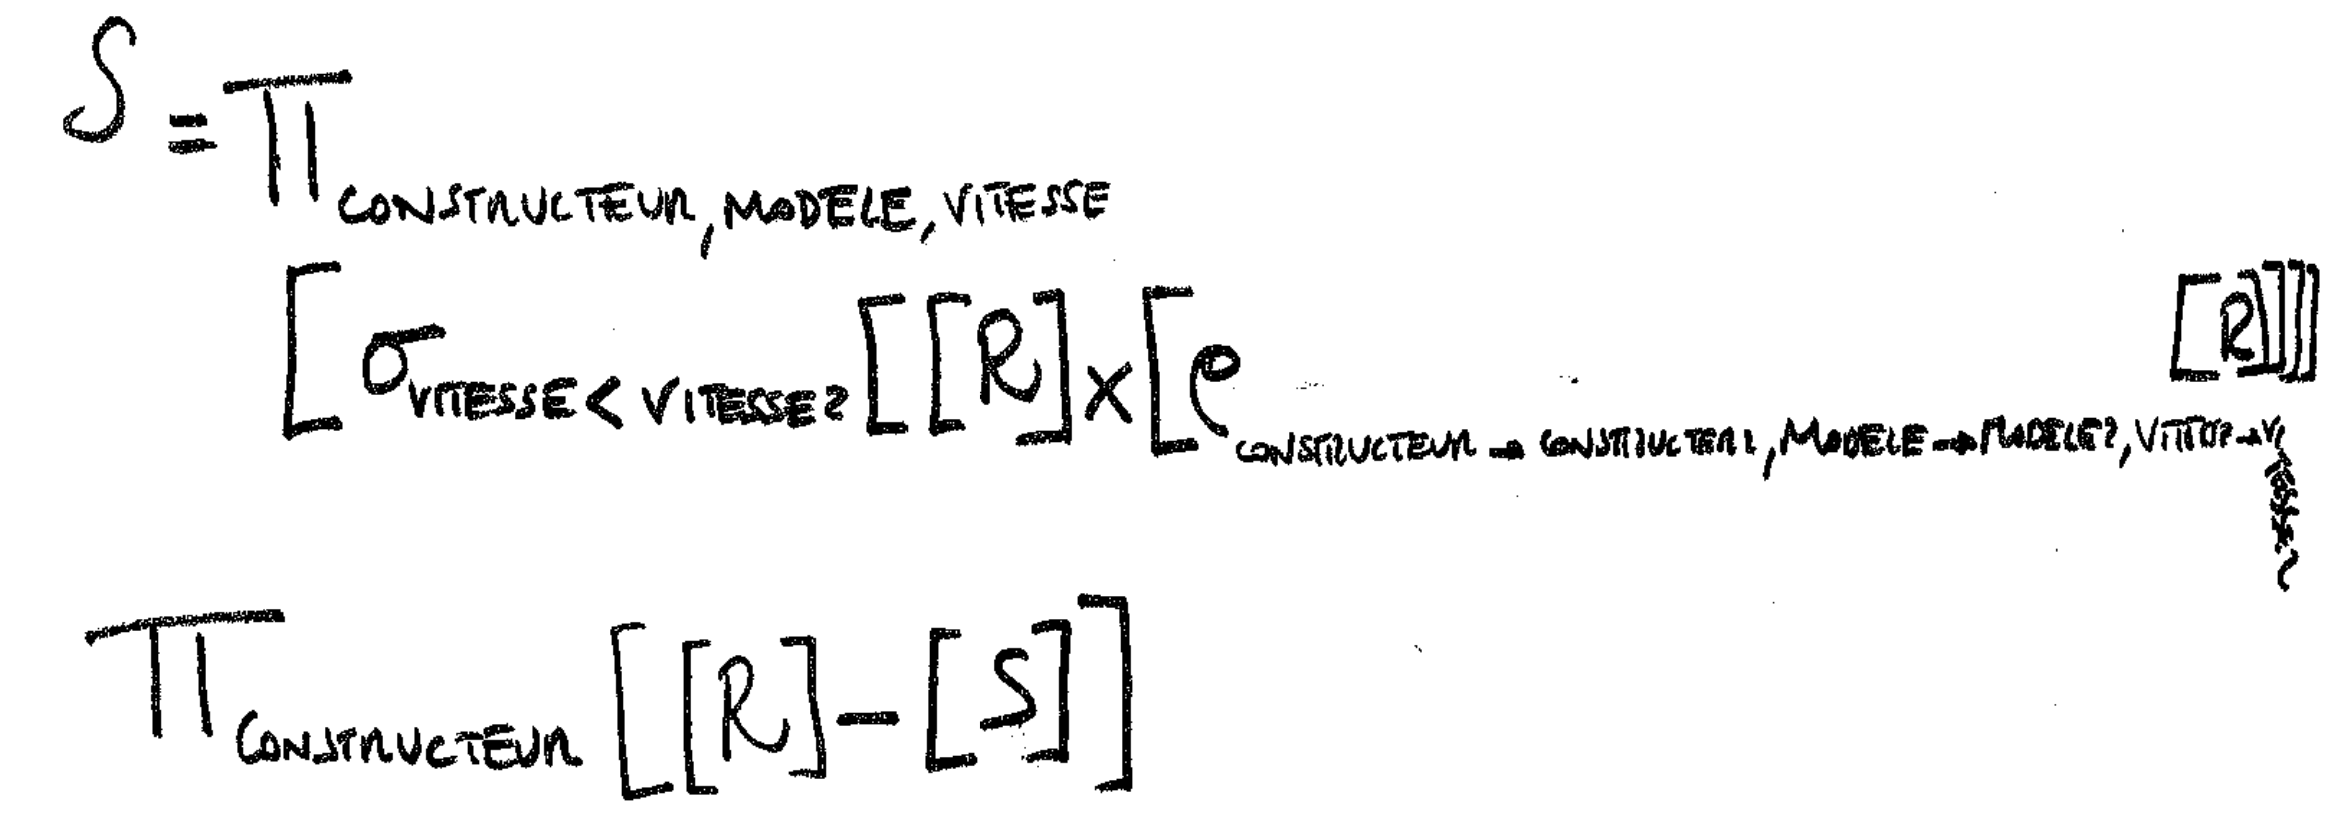 S = π CONSTRUCTEUR, MODELE, VITESSE
[σ VITESSE < VITESSE2 [[R] × [ρ CONSTRUCTEUR → CONSTRUCTEUR2, MODELE → MODELE2, → VITESSE2 [R]]]]
π CONSTRUCTEUR [[R] – [S]]